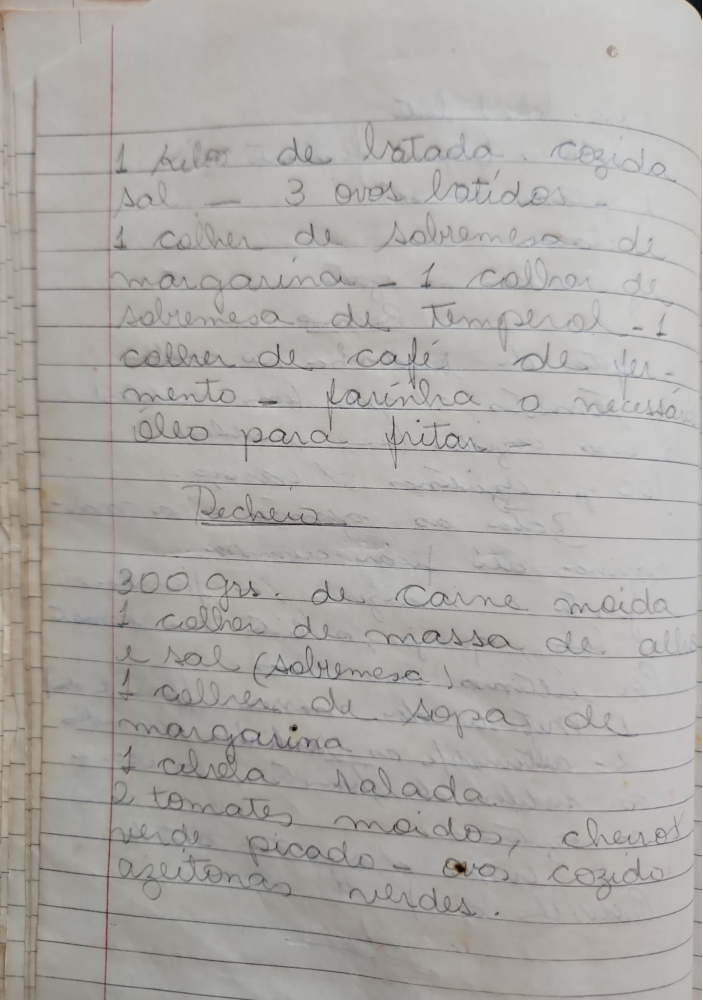 1 kilos de batada cozida
sal - 3 ovos batidos -
1 colher de sobremesa de
margarina - 1 colher de
sobremesa de temperol - 1
colher de café de fer-
mento - farinha o necessá
óleo para fritar -
Recheio
300 grs. de carne moida
1 colher de massa de alho
e sal (sobremesa)
1 colher de sopa de
margarina
1 cebola ralada
2 tomates moidos, cheiros
verde picado - ovos cozido
azeitonas verdes.